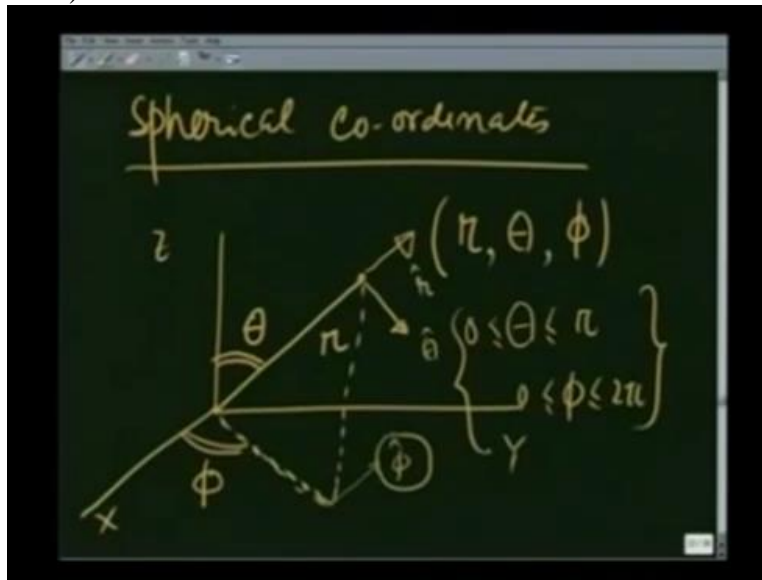 Spherical co-ordinates
z
(r, θ, φ)
r̂
θ
r
θ̂
{0 ≤ θ ≤ π
0 ≤ φ ≤ 2π}
Y
φ
φ̂
X